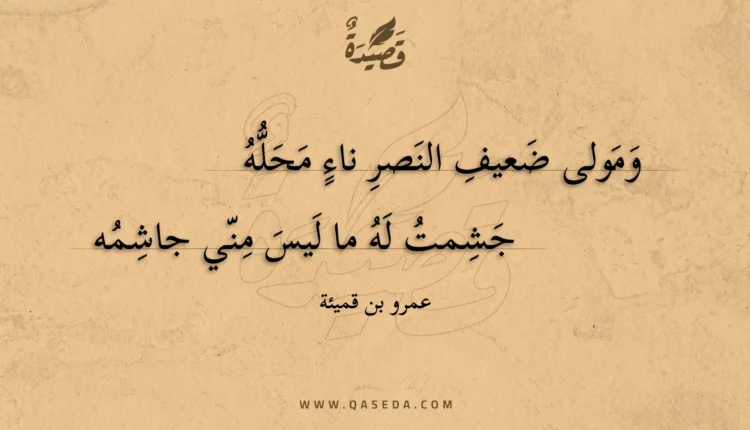 قَصِيْدَةٌ
وَمَولى ضَعيفِ النَصرِ ناءٍ مَحَلُّهُ
جَشِمتُ لَهُ ما لَيسَ مِنّي جاشِمُه
عمرو بن قميئة
WWW.QASEDA.COM